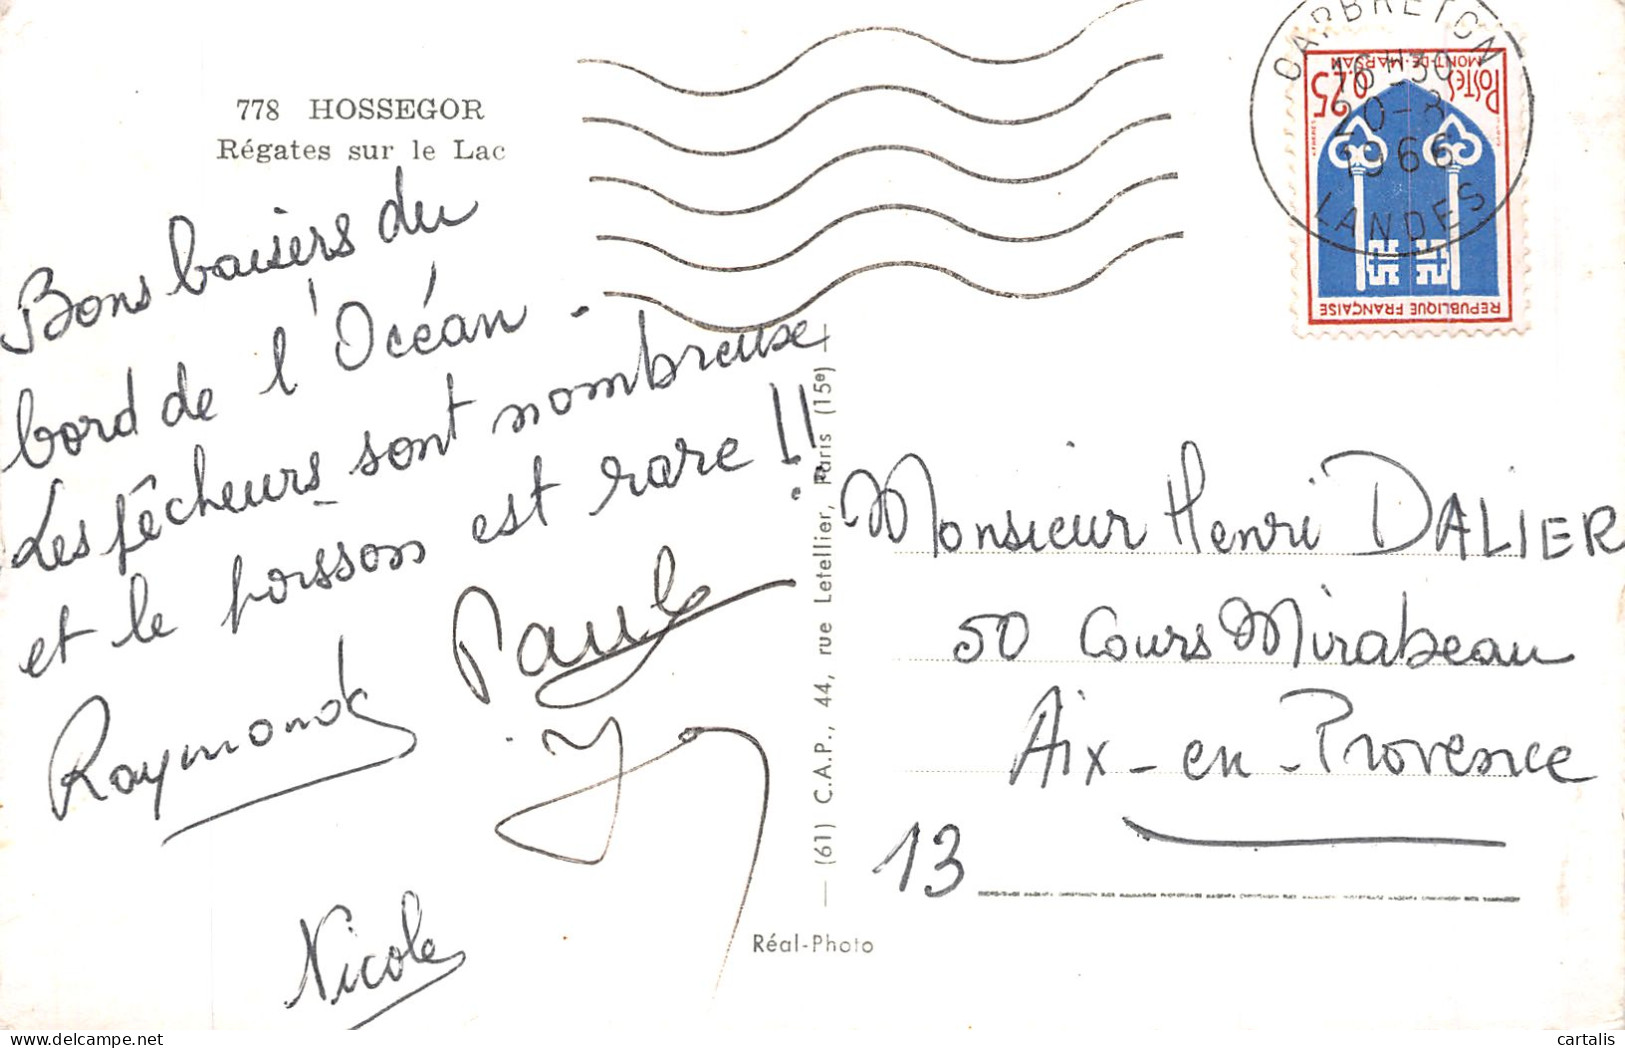 778 HOSSEGOR
Régates sur le Lac
Bons baisers du
bord de l'Océan -
Les pêcheurs sont nombreuse
et le poisson est rare !!
Raymonde
Paule
Nicole
CAPBRETON
16H30
20-8
1966
LANDES
POSTES 0,25
MONT-DE-MARSAN
REPUBLIQUE FRANÇAISE
(61) C.A.P., 44, rue Letellier, Paris (15e)
Réal-Photo
Monsieur Henri DALIER
50 Cours Mirabeau
Aix-en-Provence
13
cartalis